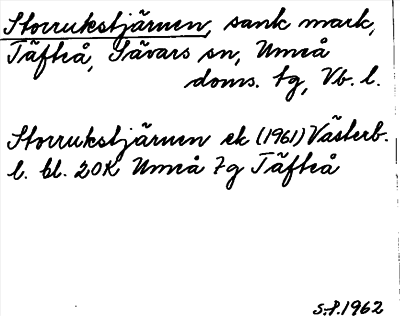 Storrukstjärnen, sank mark,
Täfteå, Sävars sn, Umeå
doms. tg, Vb. l.
Storrukstjärnen ek (1961) Västerb.
l. bl. 20K Umeå 7g Täfteå
S.P. 1962